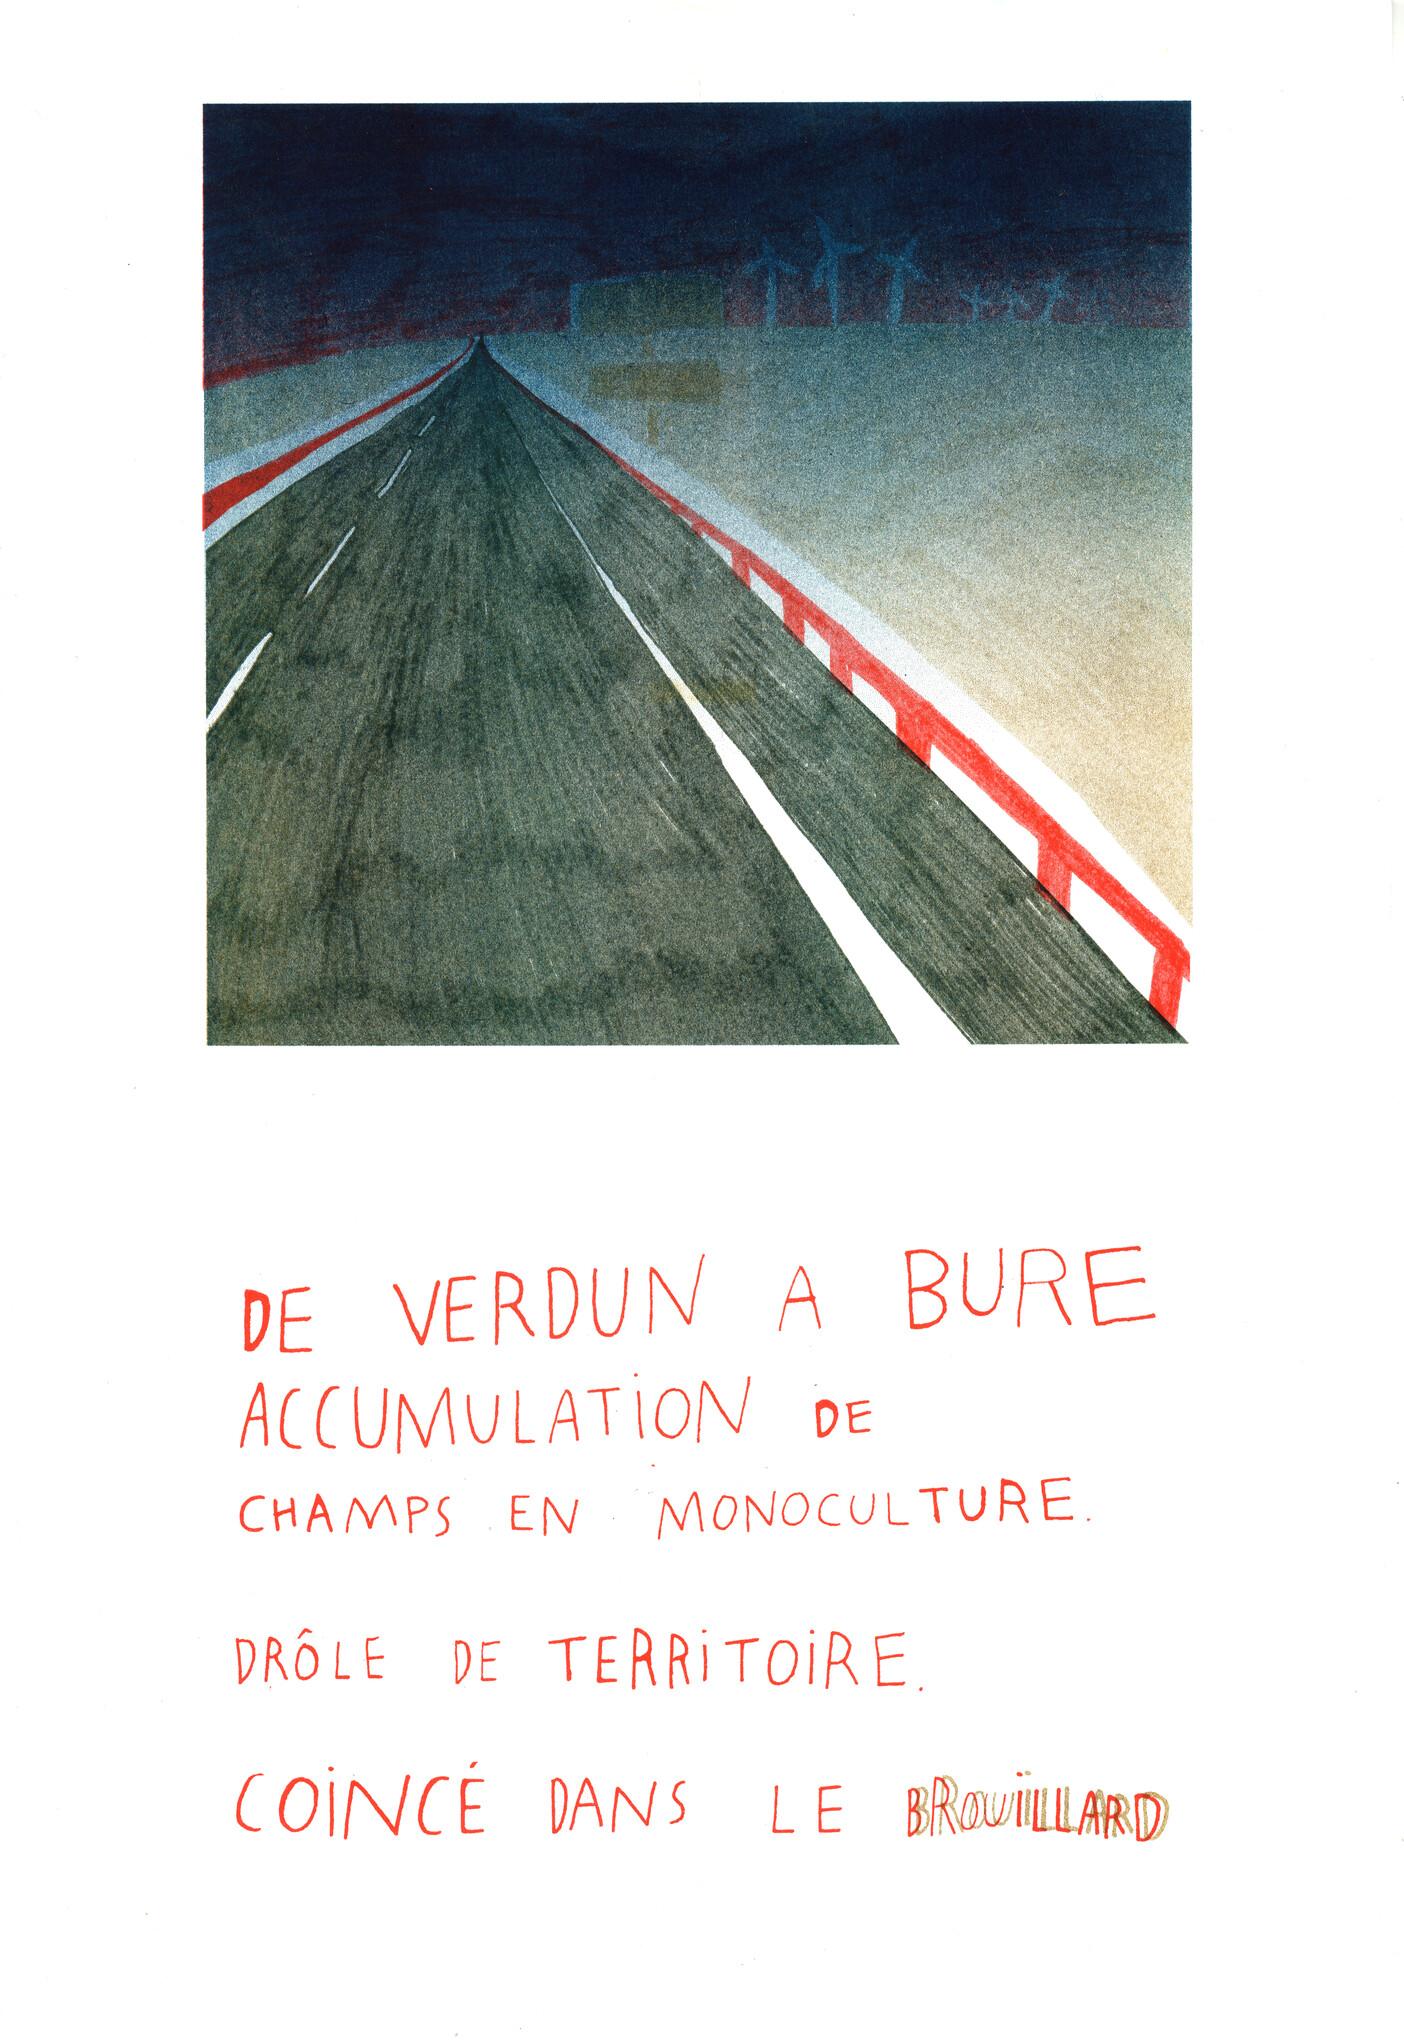 DE VERDUN A BURE
ACCUMULATION DE
CHAMPS EN MONOCULTURE.
DRÔLE DE TERRITOIRE.
COINCÉ DANS LE BROUILLARD